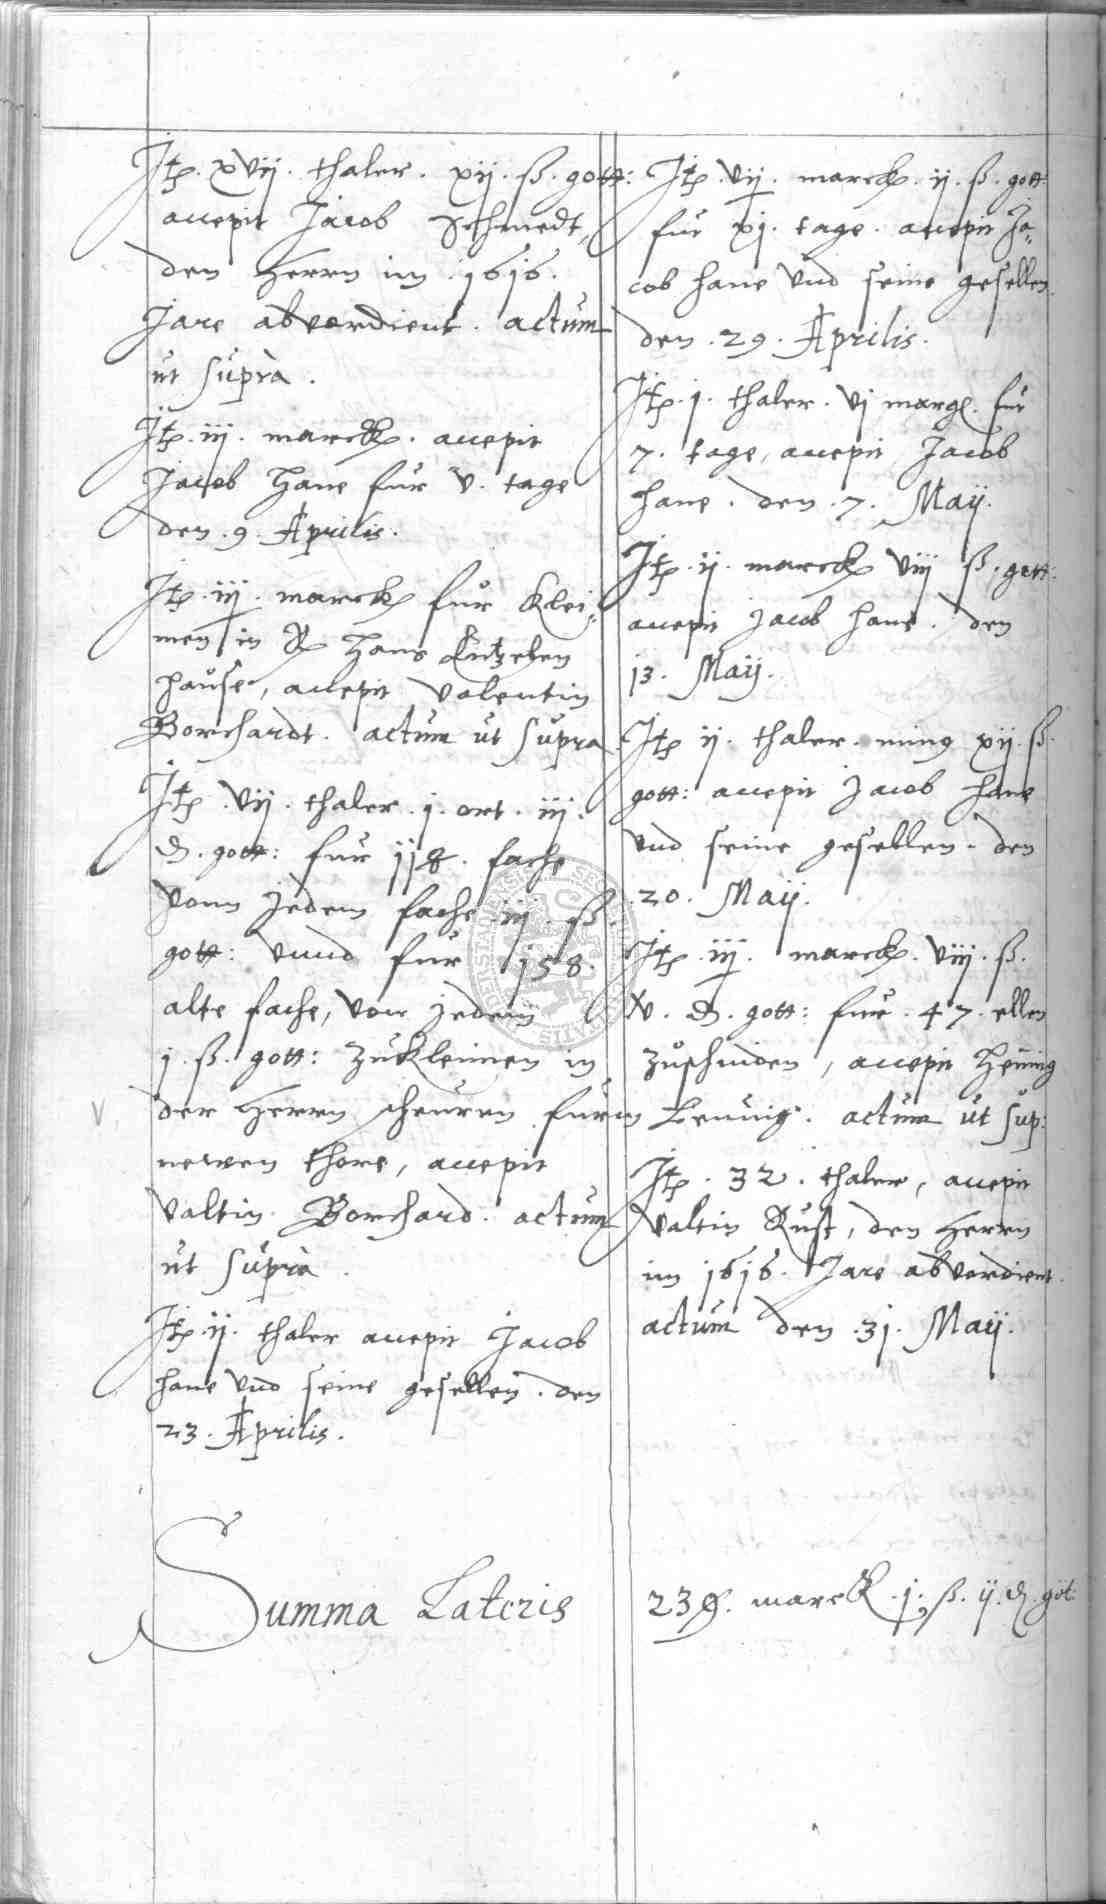 Itē. xvij. thaler. xij. ß. gott:
accepit Jacob Schmedt,
den Herrn im 1616.
Jare abverdient. actum
ut suprà.
Itē. iij. marck. accepit
Jacob Hane für v. tage
den. 9. Aprilis.
Itē. iij. marck für klei¬
men in H Hans
hause, accepit Valentin
Borchardt. actum ut supra
Itē. vij. thaler. j. ort. iij.
₰. gott: fur 118. fache
vonn jedem fache iij. ß.
gott: vnnd fur 158.
alte fache, von jedem
j. ß. gott: zukleimen in
der Herrn scheuren furm
newen thore, accepit
Valtin Borchard. actum
ut suprà.
Itē. ij. thaler accepit Jacob
Hane vnd seine gesellen. den
23. Aprilis.
Itē. vij. marck. ij. ß. gott:
fur xj. tage. accepit Ja¬
cob Hane vnd seine gesellen.
den. 29. Aprilis.
Itē. j. thaler. vj marg. fur
7. tage, accepit Jacob
Hane. den. 7. Maij.
Itē. ij. marck viij ß. gott:
accepit Jacob Hane. den
13. Maij.
Itē ij. thaler. ming xij. ß.
gott: accepit Jacob Hane
vnd seine gesellen. den
20. Maij.
Itē. iij. marck. viij. ß.
v. ₰. gott: fur. 47. ellen
zuschniden, accepit Henning
Lenning. actum ut sup:
Itē. 32. thaler, accepit
Valtin Rust, den Herrn
im 1616. Jare abverdient.
actum den. 31. Maij.
Summa Lateris 239. marck. j. ß. ij. ₰. got: